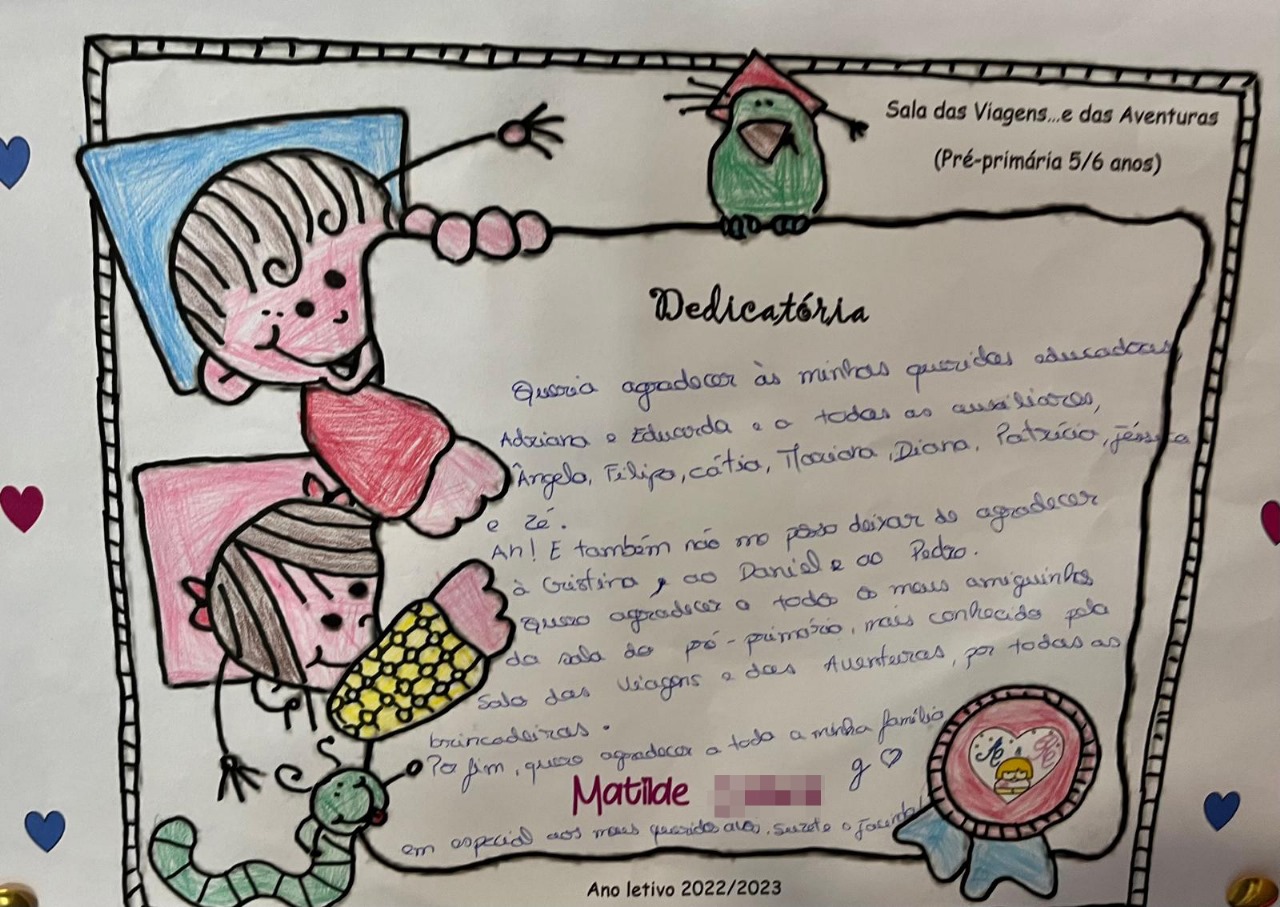 Sala das Viagens...e das Aventuras
(Pré-primária 5/6 anos)
Dedicatória
Queria agradecer às minhas queridas educadoras,
Adriana e Eduarda e a todas as auxiliares,
Ângela, Filipa, Cátia, Mariana, Diana, Patrícia, Jéssica
e Zé.
Ah! E também não me posso deixar de agradecer
à Cristina, ao Daniel e ao Pedro.
Quero agradecer a todos os meus amiguinhos
da sala da pré-primária, mais conhecida pela
Sala das Viagens e das Aventuras, por todas as
brincadeiras.
Por fim, quero agradecer a toda a minha família
Matilde
em especial aos meus queridos avós, Suzete e
Ano letivo 2022/2023